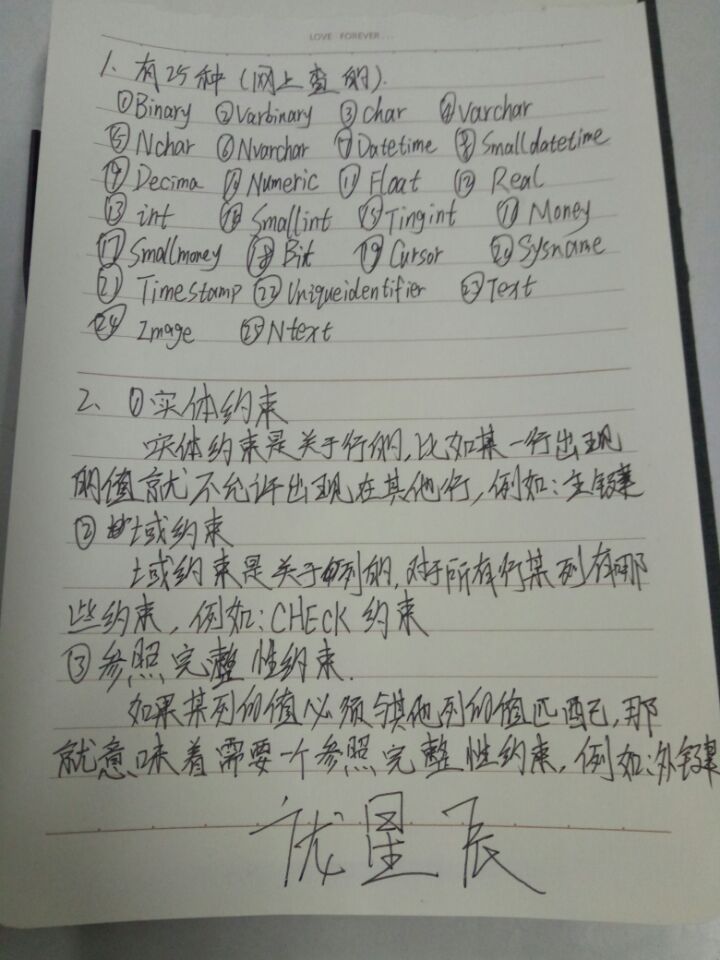 LOVE FOREVER...
1、有25种(网上查的).
①Binary ②Varbinary ③Char ④Varchar
⑤Nchar ⑥Nvarchar ⑦Datetime ⑧Smalldatetime
⑨Decima ⑩Numeric ⑪Float ⑫Real
⑬int ⑭Smallint ⑮Tingint ⑯Money
⑰Smallmoney ⑱Bit ⑲Cursor ⑳Sysname
㉑Timestamp ㉒Uniqueidentifier ㉓Text
㉔Image ㉕Ntext
2、①实体约束
实体约束是关于行的,比如某一行出现
的值就不允许出现在其他行,例如:主键
②域约束
域约束是关于列的,对于所有行某列有哪
些约束,例如:CHECK约束
③参照完整性约束.
如果某列的值必须与其他列的值匹配,那
就意味着需要一个参照完整性约束,例如:外键
星辰